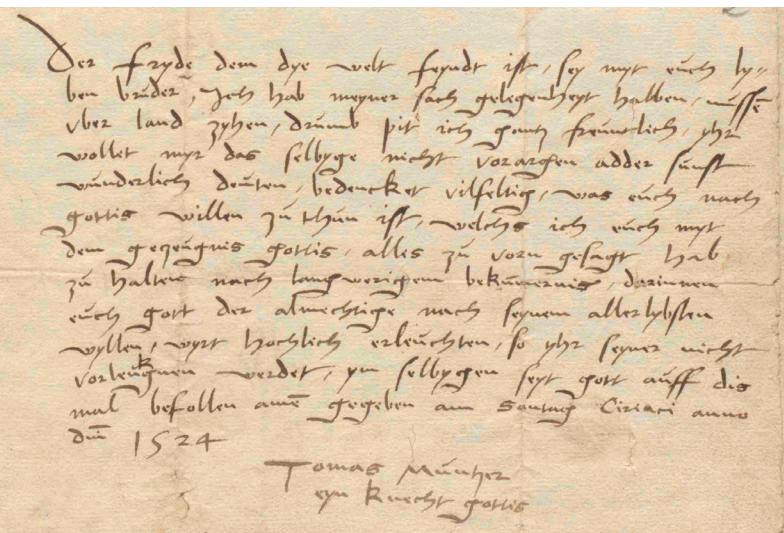 Der fryde dem dye welt feyndt ist, sey myt euch ly-
ben bruder, Ich hab meyner sach gelegenheyt halben, mussē
vber land zyhen, drumb pit ich gantz freuntlich, yhr
wollet myr das selbyge nicht vorargen adder sunst
wunderlich deuten, bedencket vilfeltig, was euch nach
gottis willen zu thun ist, welchs ich euch myt
dem gezeugnis gottis, alles zu vorn gesagt hab
zu halten nach langwerigem bekummernis, darinnen
euch gott der almechtige nach seynem allerlybsten
wyllen, wyrt hochlich erleuchten, so yhr seyner nicht
vorleuknen werdet, ym selbygen seyt gott auff dis
mal befollen amē gegeben am Sontag Ciriaci anno
dm̄ 1524
Tomas Muntzer
eyn knecht gottis